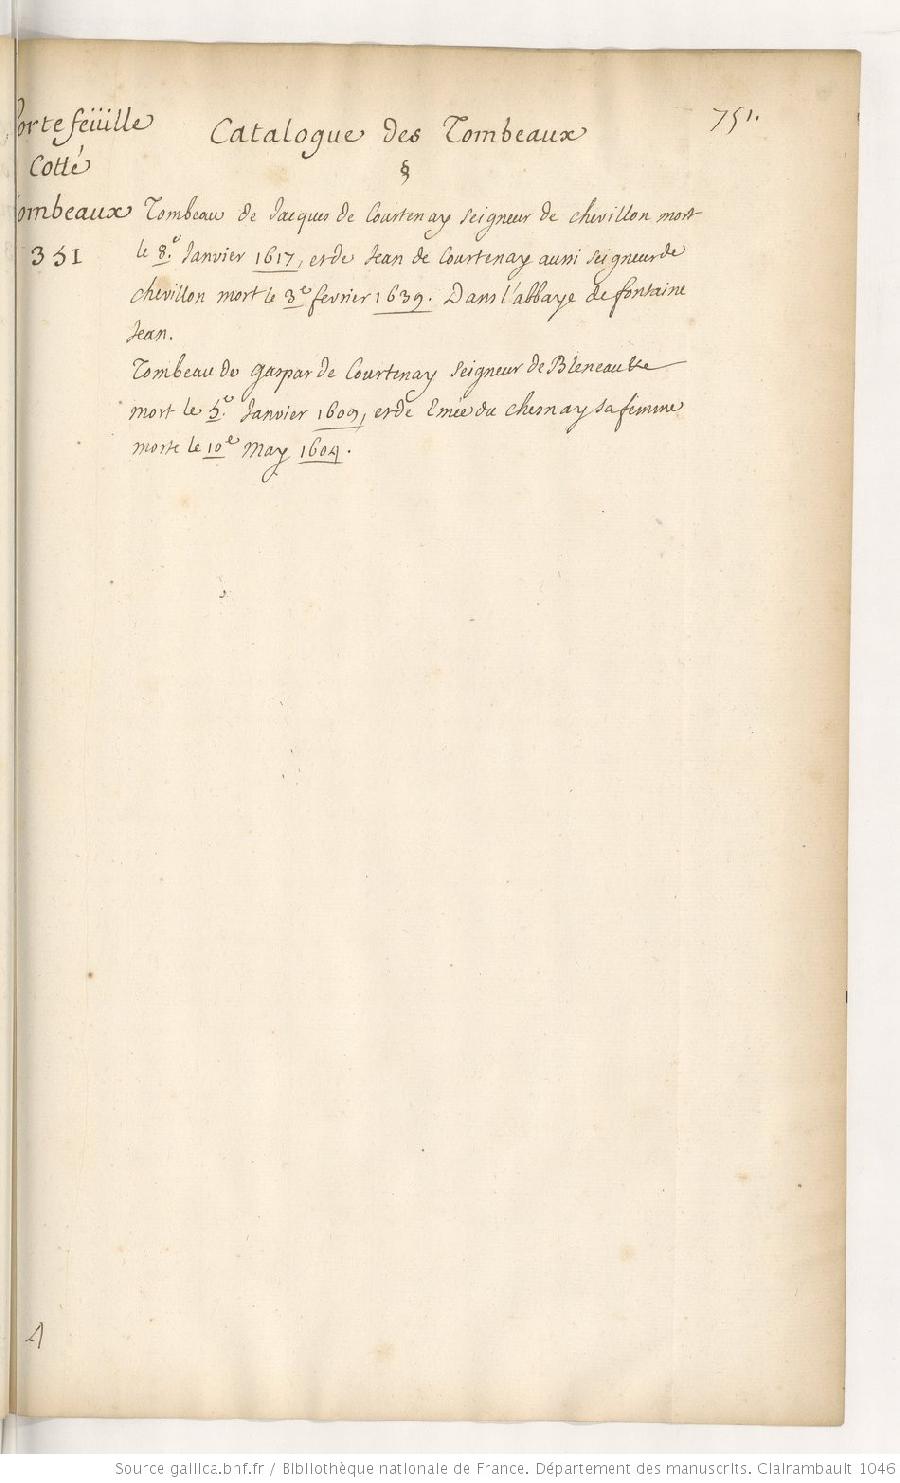 751.
Portefeüille
Cotté
Tombeaux
351
Catalogue des Tombeaux
§
Tombeau de Jacques de Courtenay seigneur de chevillon mort
le 8.e Janvier 1617, et de Jean de Courtenay aussi seigneur de
chevillon mort le 3e fevrier 1639. Dans l'abbaye de fontaine
Jean.
Tombeau de gaspar de Courtenay seigneur de Bleneau &c
mort le 5.e Janvier 1609, et de Emée du chesnay sa femme
morte le 10e May 1604.
A
Source gallica.bnf.fr / Bibliothèque nationale de France. Département des manuscrits. Clairambault 1046